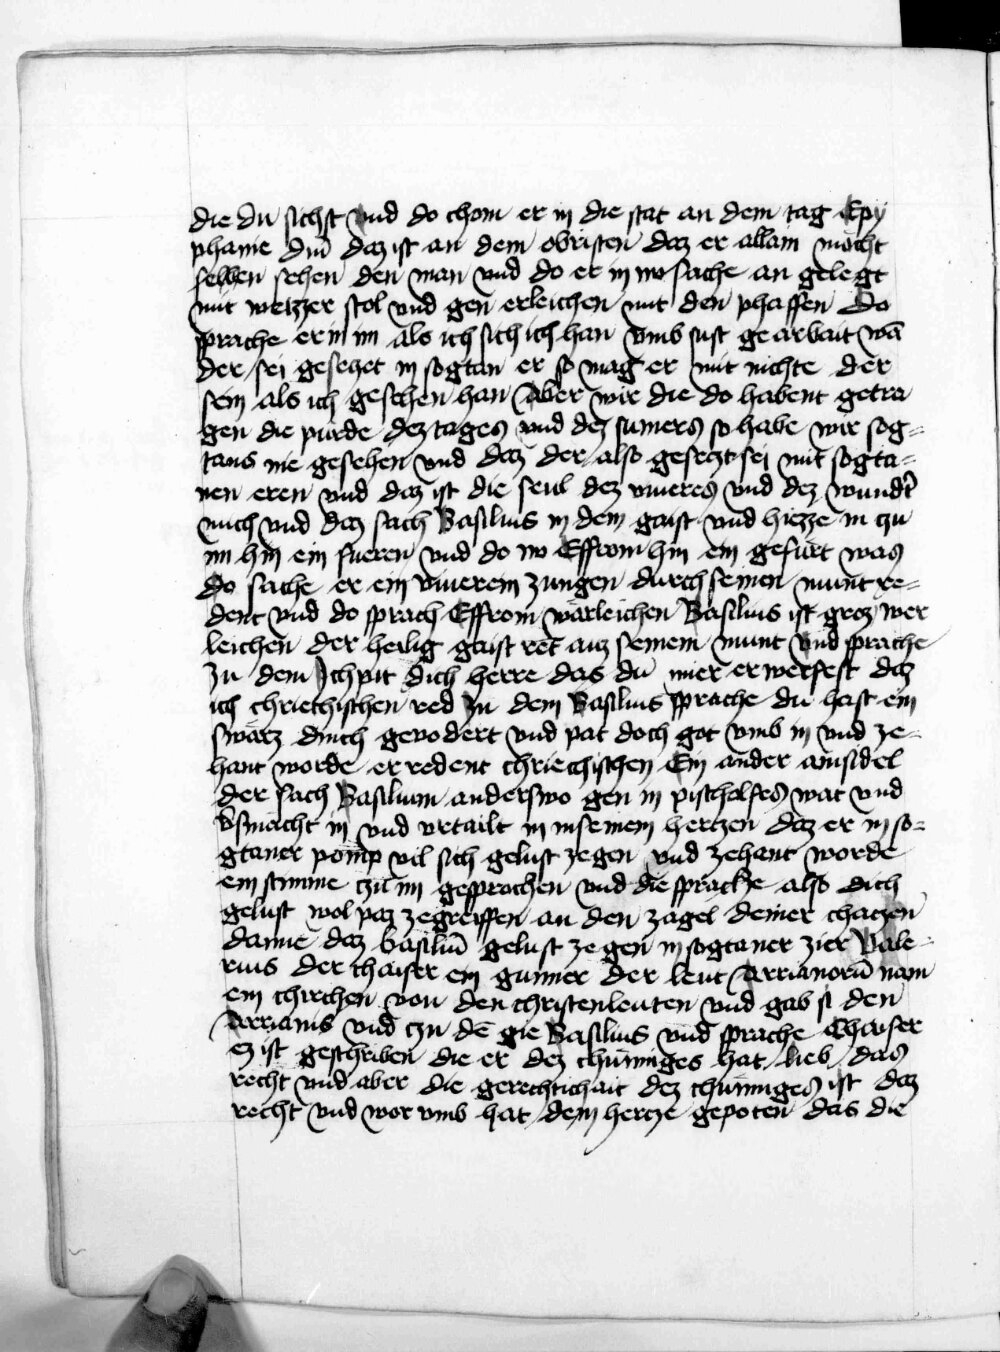 die du sichst vnd do chom er in die stat an dem tag Epy
phanie dn̄i daz ist an dem obristen daz er allain möcht
selben sehen den man vnd do er in wo sache an gelegt
mit weizzer stol vnd gen erleichen mit den phaffen Do
sprache er in im als ich sich ich han vmb sust gearbait wā
der sei gesehet in sogtan er so mag er mit nichte der
sein als ich gesehen han Aber wir die do habent getra
gen die purde dez tages vnd dez sumers so habe wir sog=
tans nie gesehen vnd daz der also gesetzt sei mit sogta=
nen eren vnd daz ist die seul dez viueres vnd dez wundt
mich vnd daz sach Basilius in dem gaist vnd hiezze in tzu
im hin ein fueren vnd do wo Effrom hin ein gefurt was
do sache er ein viuerein zungen durch seinen munt re=
dent vnd do sprach Effrom wärleichen Basilius ist groz wer
leichen der heilig gaist ret auz seinem munt vnd sprache
zu dem Ich pit dich herre das du mier erwerfest daz
ich chriechischen red zu dem Basilius sprache du hast ein
swärz dinch gevodert vnd pat doch got vmb in vnd ze=
hant worde er redent chriechischen Ein ander ainsidel
der sach Basilium anderswo gen in pischolfes wat vnd
v̄smacht in vnd vrtailt in in seinem hertzen daz er in so=
gtaner pomp vil sich gelust ze gen vnd zehant worde
ein stimme tzu im gesprochen vnd die sprache also dich
gelust wol paz zegreiffen an den zagel deiner chatzen
danne daz basiliū gelust ze gen in sogtaner zier Vale=
rius der chaiser ein gunner der leut Arrianorū nam
ein chirchen von den christenleuten vnd gab si den
Arrianis vnd tzu dē gie Basilius vnd sprache Chaiser
ez ist geschriben die er dez chunniges hat lieb das
recht vnd aber die gerechtichait dez chunniges ist daz
recht vnd wor vmb hat dem hertze gepoten das die